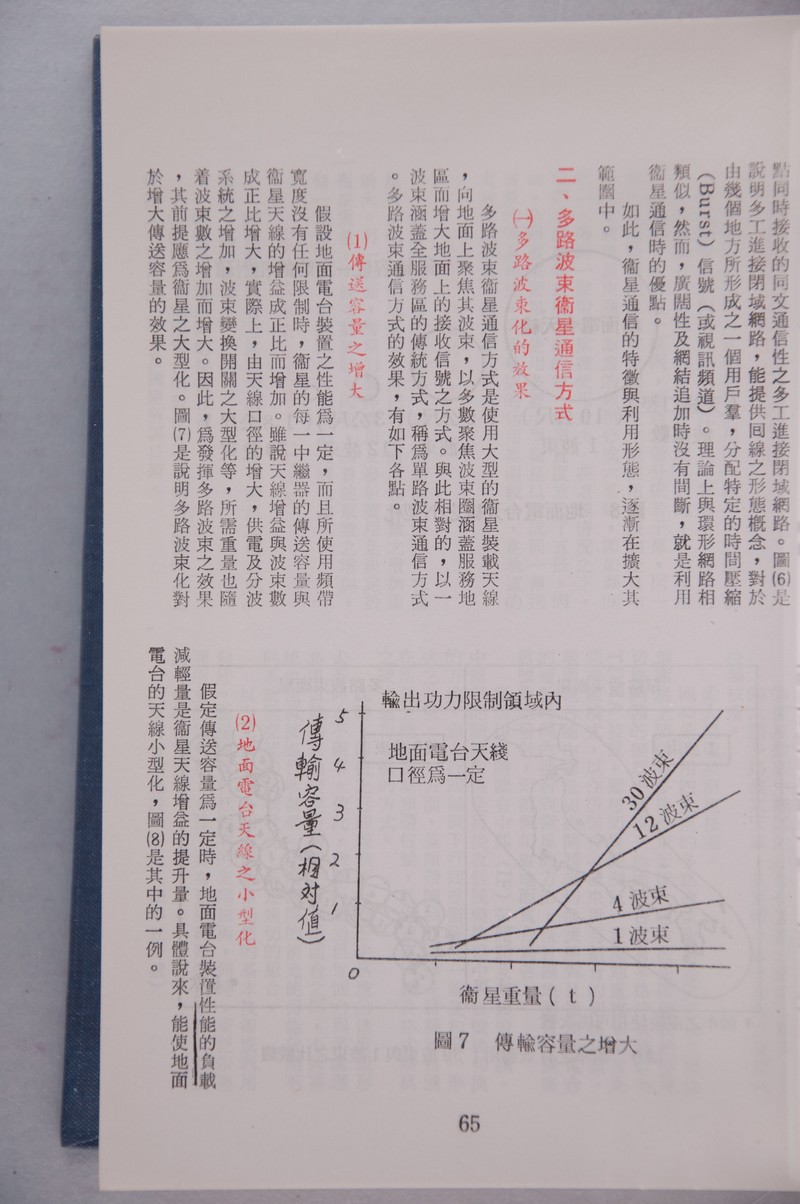 點同時接收的同文通信性之多工進接閉域網路。圖(6)是
說明多工進接閉域網路，能提供同線之形態概念，對於
由幾個地方所形成之一個用戶羣，分配特定的時間壓縮
（Burst）信號（或視訊頻道）。理論上與環形網路相
類似，然而，廣闊性及網結追加時沒有間斷，就是利用
衞星通信時的優點。
如此，衞星通信的特徵與利用形態，逐漸在擴大其
範圍中。
二、多路波束衞星通信方式
㈠多路波束化的效果
多路波束衞星通信方式是使用大型的衞星裝載天線
，向地面上聚焦其波束，以多數聚焦波束圈涵蓋服務地
區而增大地面上的接收信號之方式。與此相對的，以一
波束涵蓋全服務區的傳統方式，稱爲單路波束通信方式
。多路波束通信方式的效果，有如下各點。
(1)傳送容量之增大
假設地面電台裝置之性能爲一定，而且所使用頻帶
寬度沒有任何限制時，衞星的每一中繼器的傳送容量與
衞星天線的增益成正比而增加。雖說天線增益與波束數
成正比增大，實際上，由天線口徑的增大，供電及分波
系統之增加，波束變換開關之大型化等，所需重量也隨
着波束數之增加而增大。因此，爲發揮多路波束之效果
，其前提應爲衞星之大型化。圖(7)是說明多路波束化對
於增大傳送容量的效果。
輸出功力限制領域內
地面電台天綫
口徑爲一定
傳輸容量(相对值)
5
4
3
2
1
0
30波束
12波束
4波束
1波束
衞星重量(t)
圖7 傳輸容量之增大
(2)地面電台天線之小型化
假定傳送容量爲一定時，地面電台裝置性能的負載
減輕量是衞星天線增益的提升量。具體說來，能使地面
電台的天線小型化，圖(8)是其中的一例。
65